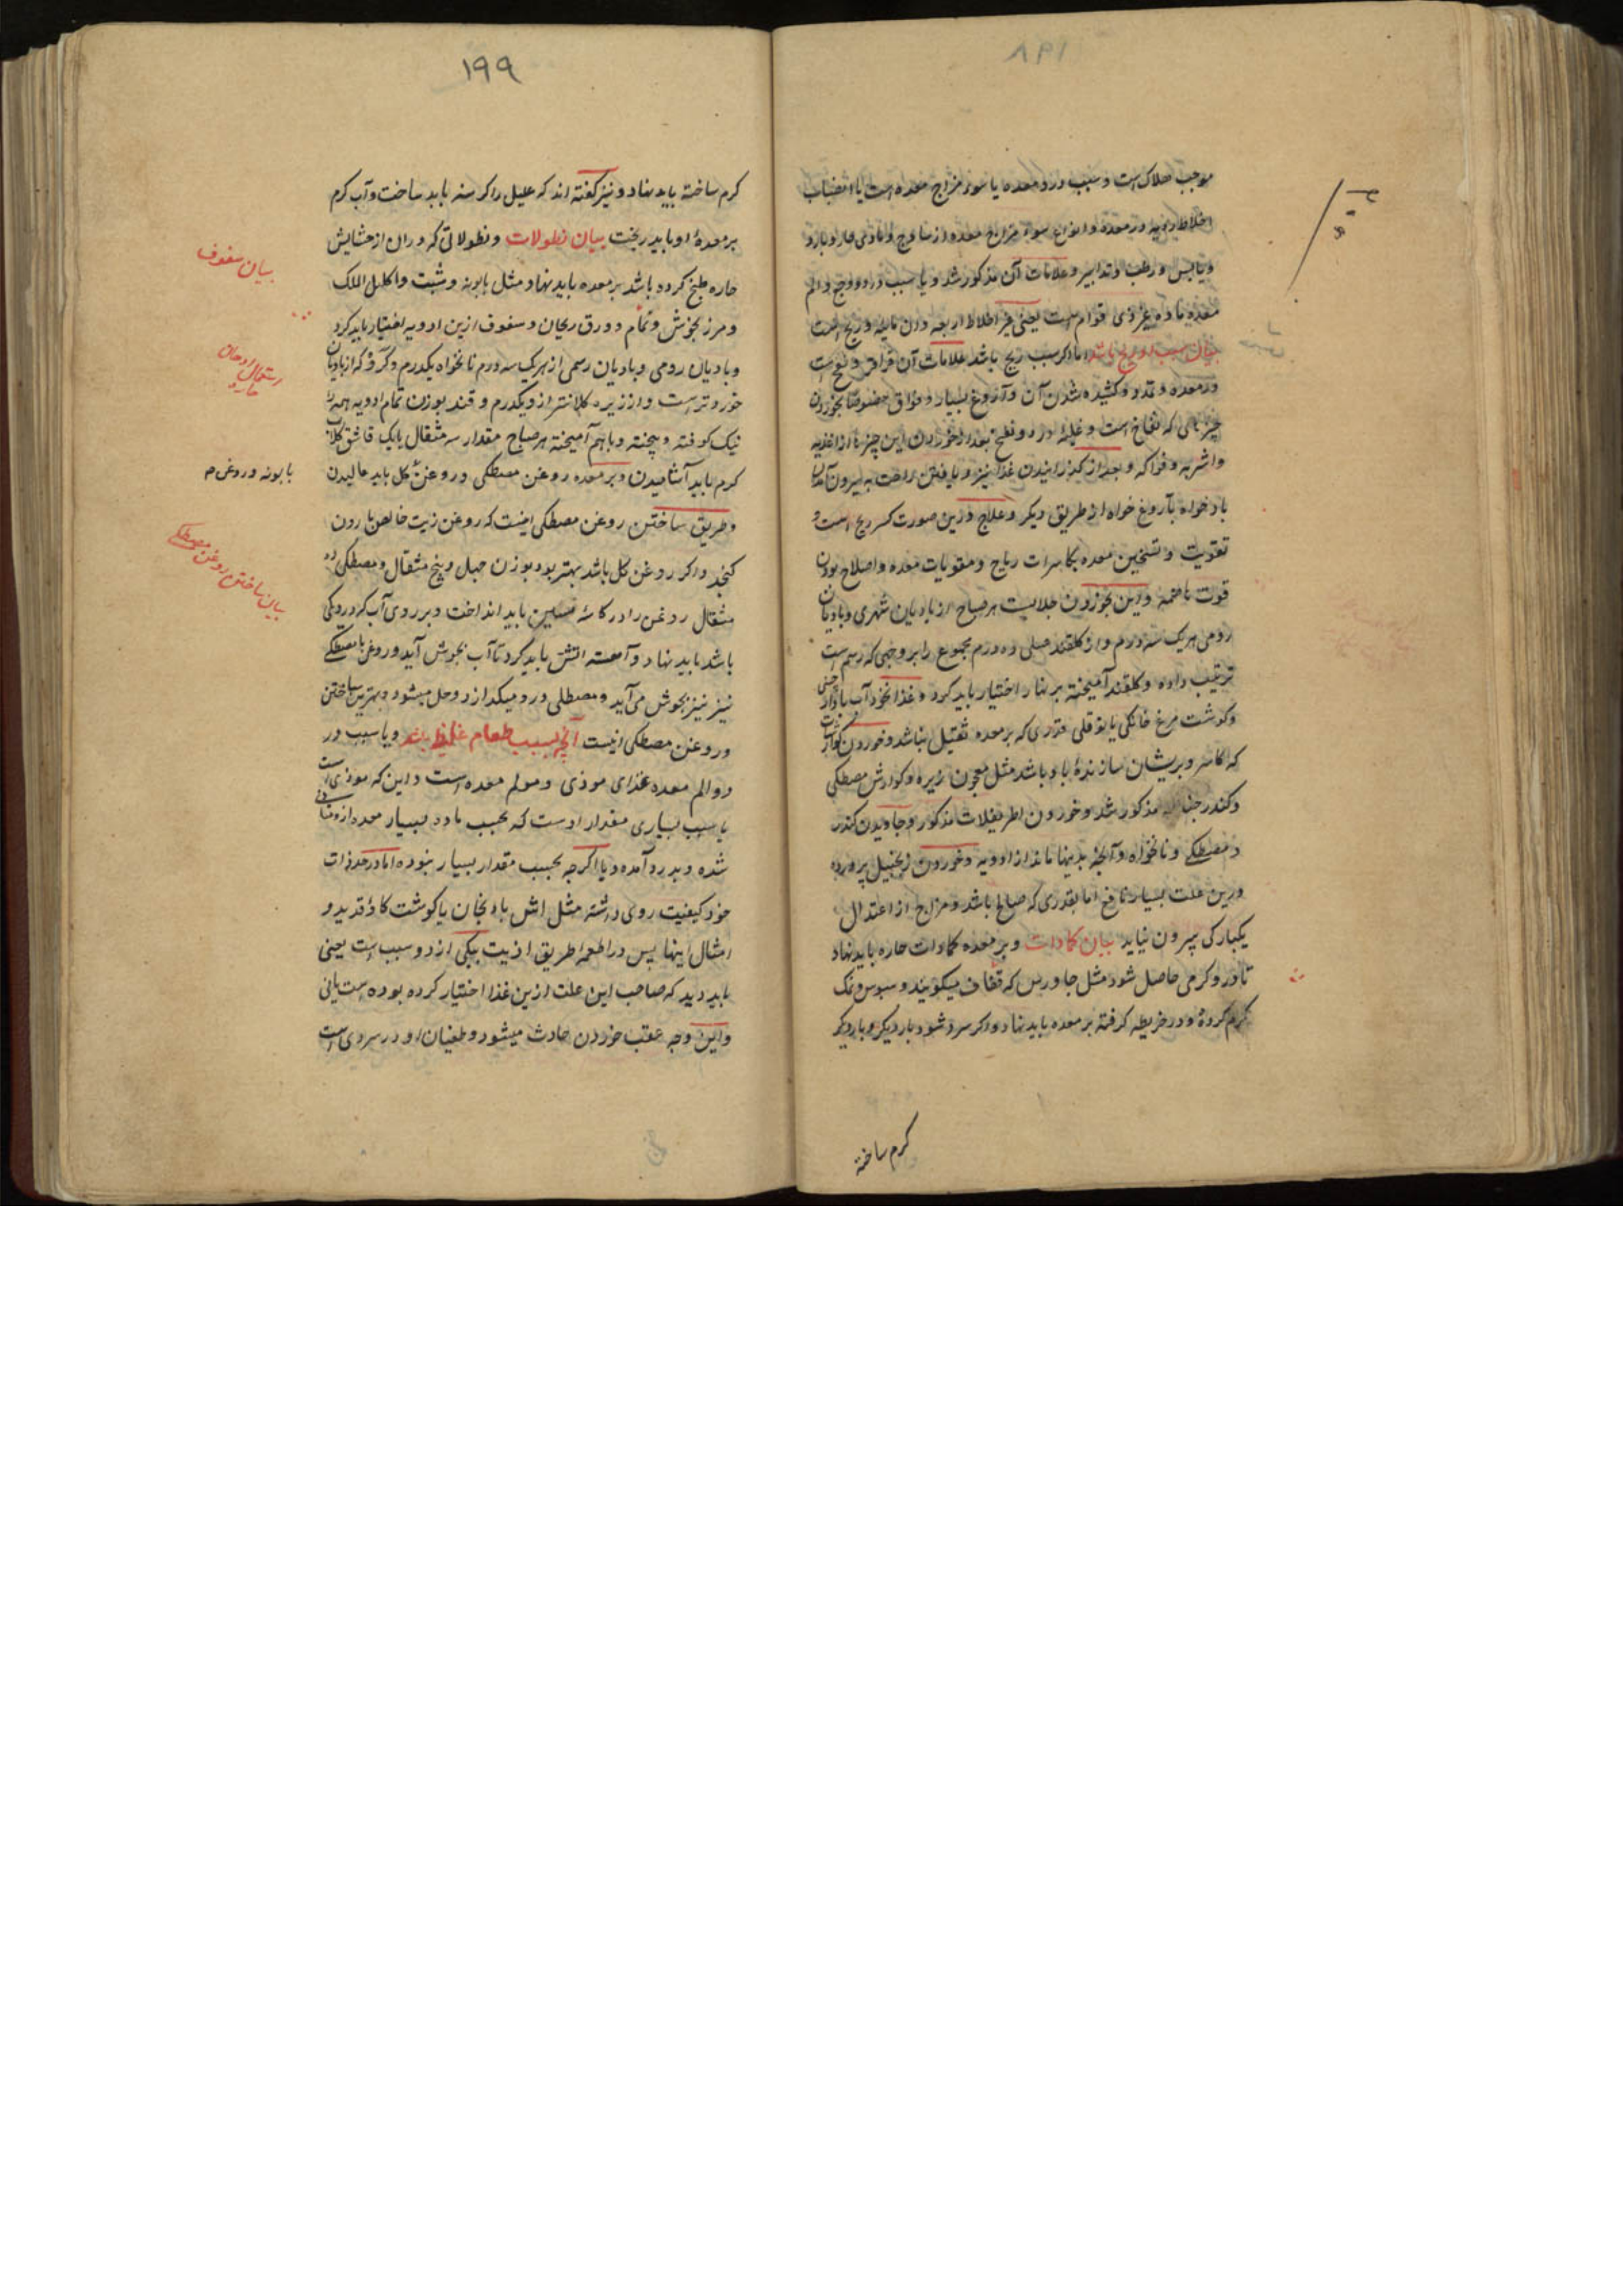 موجب هلاک است و سبب درد معده یا سوء مزاج معده است یا انصباب
اخلاط ردیه در معده و انواع سوء مزاج معده از ساذج و مادی حار و بارد
و یابس و رطب و تدابیر و علامات آن مذکور شد و یا سبب درد و وجع و الم
معده ماده غیر ذی قوام است یعنی غیر اخلاط اربعه و آن ماده و ریح است
بیان سبب او ریح باشد اما اگر سبب ریح باشد علامات آن قراقر و نفخ است
در معده و تمدد و کشیده شدن آن و آروغ بسیار و فواق خصوصا بخوردن
چیزهایی که نفاخ است و غلبه درد و نفخ بعد از خوردن این چیزها از اغذیه
و اشربه و فواکه و بعد از گذرانیدن غذا نیز و یافتن راحت به بیرون آمدن
باد خواه بآروغ خواه از طریق دیگر و علاج درین صورت کسر ریح است و
تقویت و تسخین معده بکاسرات ریاح و مقویات معده و اصلاح بودن
قوت هاضمه و این بخوردن جلابیست هر صباح از بادیان شهری و بادیان
رومی هر یک سه درم و از گلقند عسلی ده درم مجموع را بر وجهی که رسم است
ترتیب داده و گلقند آمیخته بر نهار اختیار باید کرد و غذا نخود آب با دارچینی
و گوشت مرغ خانگی یا بوقلی قدری که بر معده ثقیل نباشد و خوردن گوارشات
که کاسر و پریشان سازندهٔ باد باشد مثل معجون زیره و گوارش مصطکی
و کندر چنانچه مذکور شد و خوردن اطریفلات مذکور و جاویدن کندر
و مصطکی و نانخواه و آنچه بدینها ماند از ادویه و خوردن زنجبیل پرورده
درین علت بسیار نافع اما بقدری که صالح باشد و مزاج از اعتدال
یکبارگی بیرون نیاید بیان کمادات و بر معده کمادات حاره باید نهاد
تا درو گرمی حاصل شود مثل جاورس که قفاف میگویند و سبوس و نمک
گرم کرده و در خریطه گرفته بر معده باید نهاد و اگر سرد شود بار دیگر و بار دیگر
کرم ساخته
۱۹۹
کرم ساخته باید نهاد و نیز گفته اند که علیل را گرسنه باید ساخت و آب گرم
بر معدهٔ او باید ریخت بیان نطولات و نطولاتی که در آن از حشایش
حاره طبخ کرده باشد بر معده باید نهاد مثل بابونه و شبت و اکلیل الملک
و مرزنجوش و نمام و ورق ریحان و سفوف ازین ادویه اختیار باید کرد
و بادیان رومی و بادیان رسمی از هر یک سه درم نانخواه یکدرم و کرّوی که از بادیان
خوردتر است و از زیره کلانتر از و یکدرم و قند بوزن تمام ادویه همه را
نیک کوفته و بیخته و باهم آمیخته هر صباح مقدار سه مثقال یا یک قاشق گلاب
گرم باید آشامیدن و بر معده روغن مصطکی و روغن گل باید مالیدن
و طریق ساختن روغن مصطکی اینست که روغن زیت خالص یا روغن
کنجد و اگر روغن گل باشد بهتر بود بوزن چهل و پنج مثقال و مصطکی ده
مثقال روغن را در کاسهٔ مسین باید انداخت و بر روی آب که در دیگی
باشد باید نهاد و آهسته آتش باید کرد تا آب بجوش آید و روغن با مصطکی
نیز نیز بجوش می آید و مصطکی درو میگدازد و حل میشود و بهترین ساختن
و روغن مصطکی اینست آنچه بسبب طعام غلیظ باشد و یا سبب در
درد الم معده غذای موذی و مولم معده است و این که موذی است
یا سبب بسیاری مقدار اوست که بحسب ماده بسیار معده ازو متاذی
شده و بدرد آمده و یا اگرچه بحسب مقدار بسیار نبوده اما در حد ذات
خود کیفیت ردی داشته مثل آش بادنجان یا گوشت گاو قدید و
امثال اینها پس در اطعمه طریق اذیت بیکی از دو سبب است یعنی
باید دید که صاحب این علت ازین غذا اختیار کرده بوده است یا نی
و این وجه عقب خوردن حادث میشود و طغیان او در سردی است
بیان سفوف
استعمال ادهان حاره
بابونه و روغن
بیان ساختن روغن مصطکی